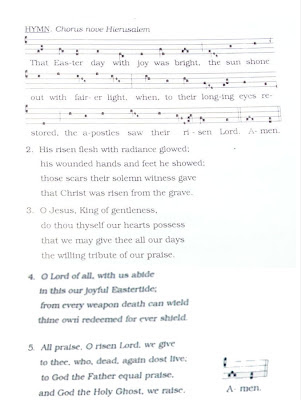 HYMN. Chorus nove Hierusalem
That Eas-ter day with joy was bright, the sun shone
out with fair- er light, when, to their long-ing eyes re-
stored, the a-postles saw their ri - sen Lord. A- men.
2. His risen flesh with radiance glowed;
his wounded hands and feet he showed;
those scars their solemn witness gave
that Christ was risen from the grave.
3. O Jesus, King of gentleness,
do thou thyself our hearts possess
that we may give thee all our days
the willing tribute of our praise.
4. O Lord of all, with us abide
in this our joyful Eastertide;
from every weapon death can wield
thine own redeemed for ever shield.
5. All praise, O risen Lord, we give
to thee, who, dead, again dost live;
to God the Father equal praise,
and God the Holy Ghost, we raise.
A- men.